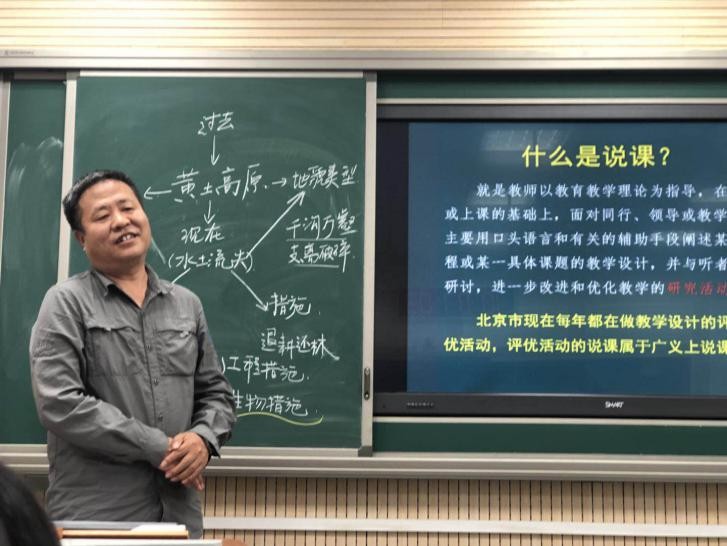 过去
黄土高原
地貌类型
现在
千沟万壑
(水土流失)
支离破碎
措施
退耕还林
工程措施
生物措施
什么是说课？
就是教师以教育教学理论为指导，在
或上课的基础上，面对同行、领导或教
主要用口头语言和有关的辅助手段阐述某
程或某一具体课题的教学设计，并与听者
研讨，进一步改进和优化教学的研究活动
北京市现在每年都在做教学设计的评
优活动，评优活动的说课属于广义上说课
SMART